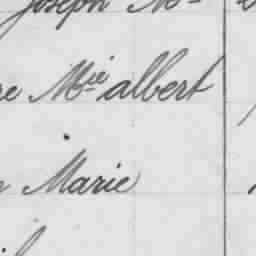 Joseph M
re Mie albert
Marie